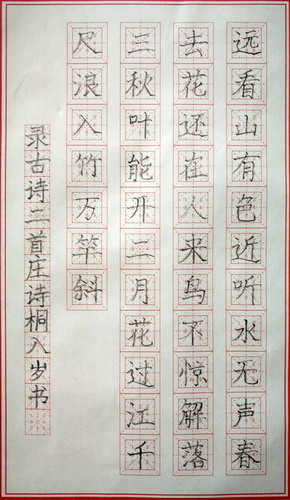 远看山有色近听水无声春
去花还在人来鸟不惊解落
三秋叶能开二月花过江千
尺浪入竹万竿斜
录古诗二首庄诗桐八岁书